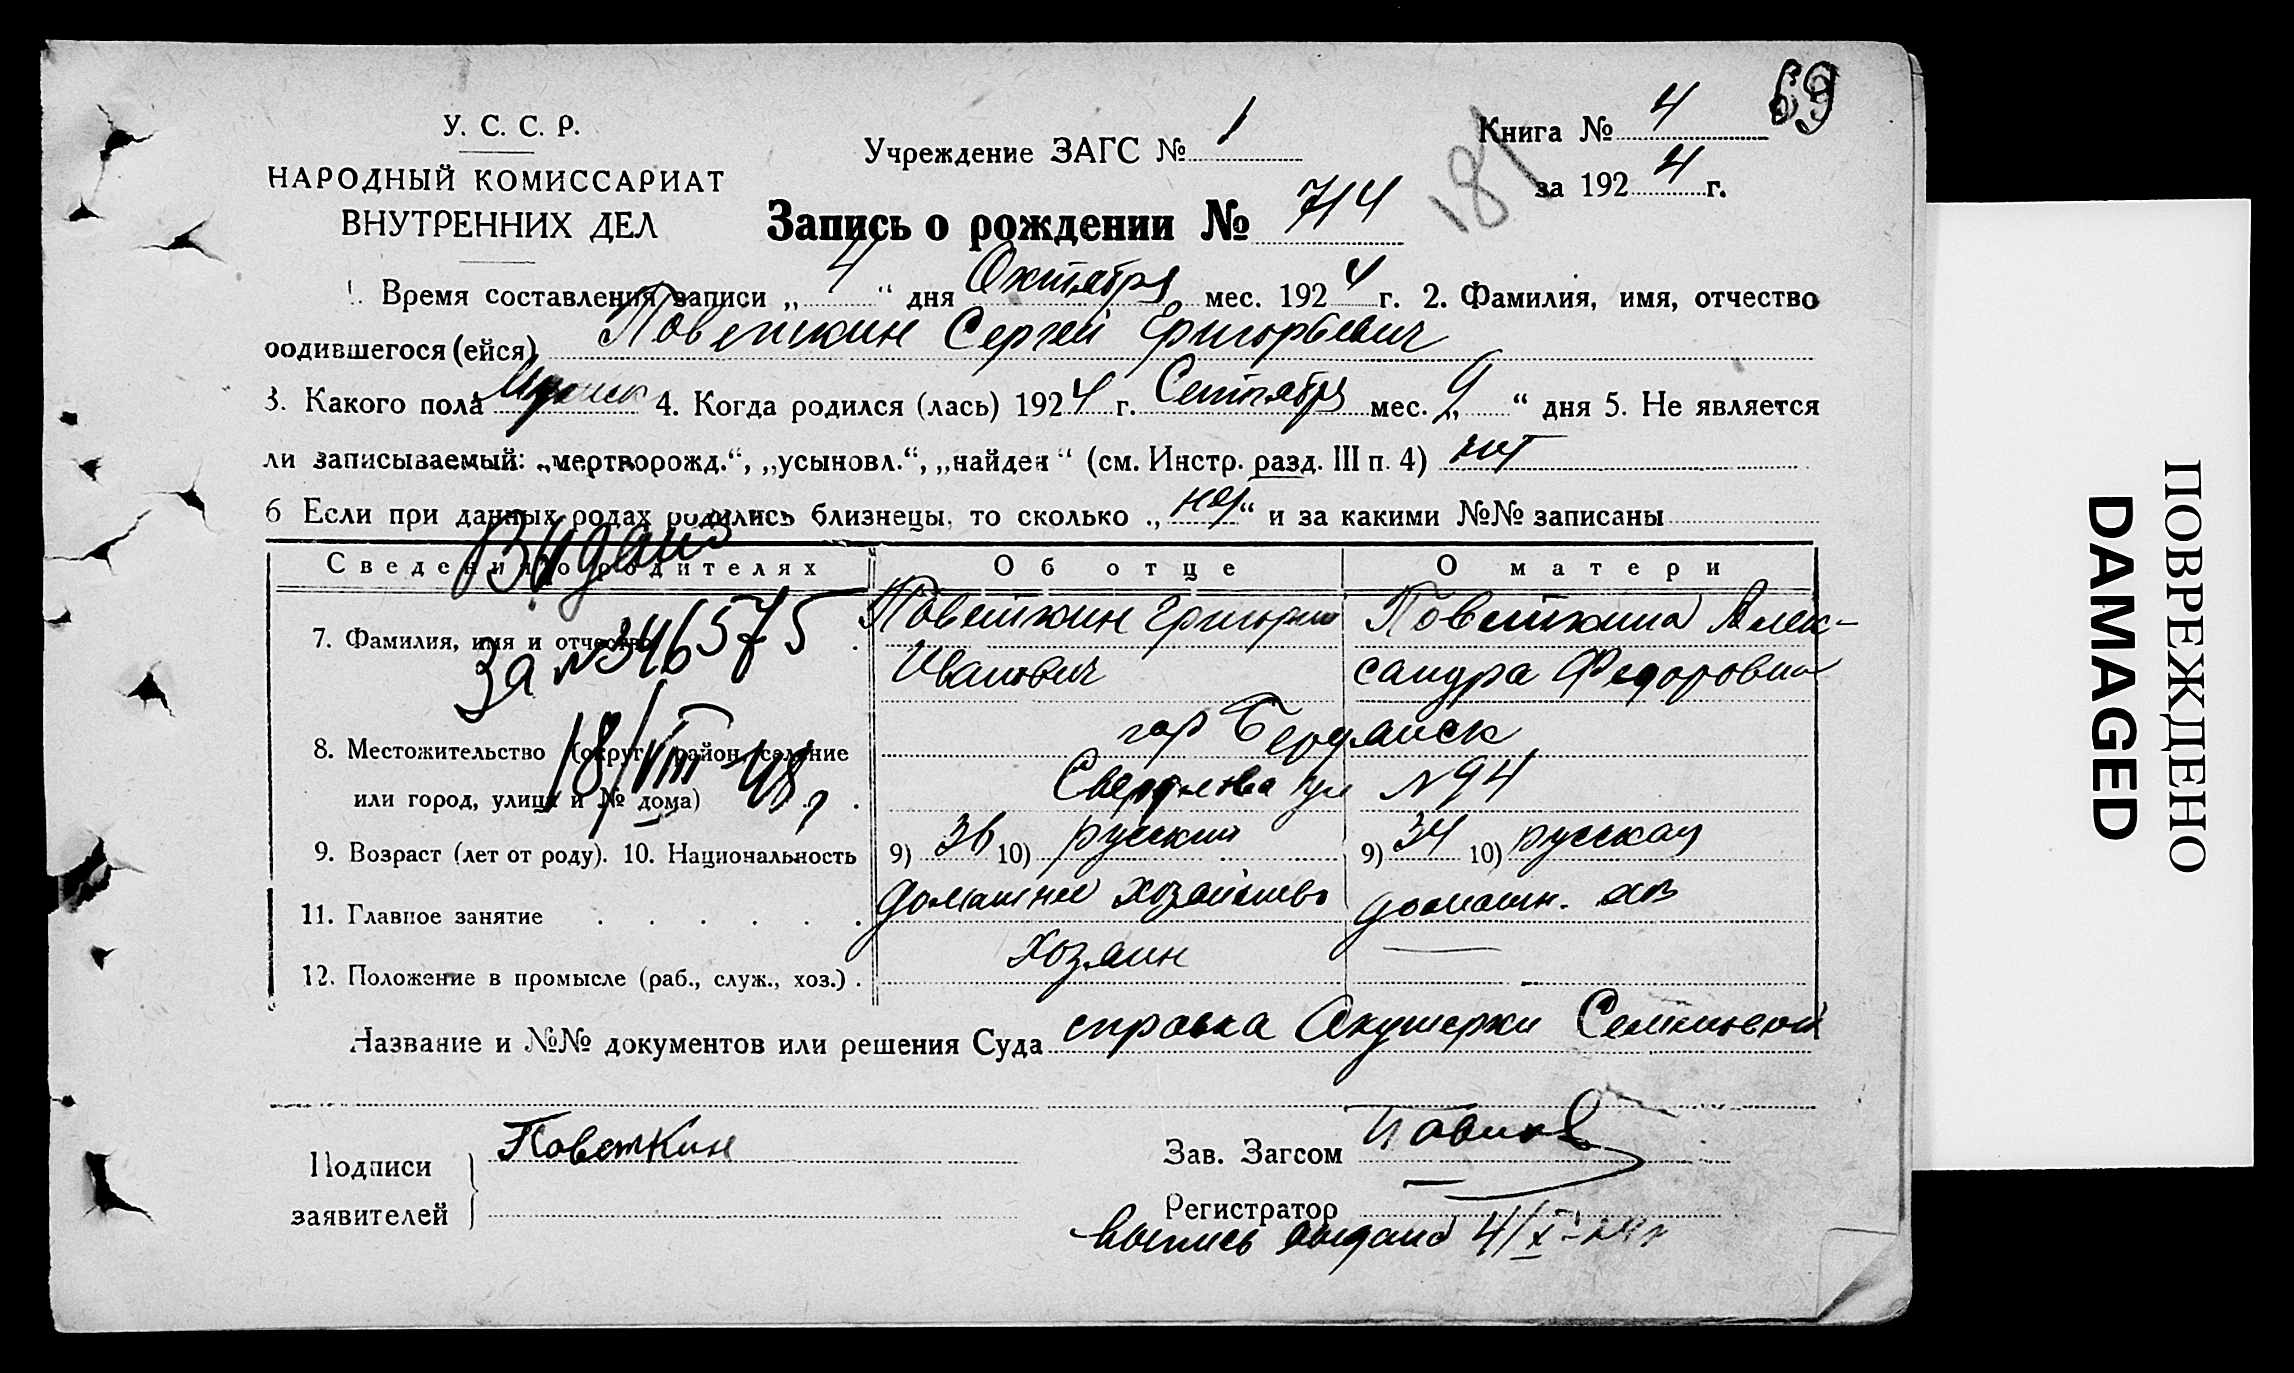 69
У. С. С. Р.
НАРОДНЫЙ КОМИССАРИАТ
ВНУТРЕННИХ ДЕЛ
Учреждение ЗАГС № 1
Книга № 4
за 1924 г.
181
Запись о рождении № 714
1. Время составления записи „4“ дня Октября мес. 1924 г. 2. Фамилия, имя, отчество
родившегося (ейся) Поветкин Сергей Григорьевич
3. Какого пола Мужск 4. Когда родился (лась) 1924 г. Сентября мес. „9“ дня 5. Не является
ли записываемый: „мертворожд.“, „усыновл.“, „найден“ (см. Инстр. разд. III п. 4) нет
6 Если при данных родах родились близнецы, то сколько „нет“ и за какими №№ записаны
Сведения о родителях Об отце О матери
7. Фамилия, имя и отчество Поветкин Григорий Поветкина Алек-
Иванович сандра Федоровна
8. Местожительство (округ, район, селение гор Бердянск
или город, улица и № дома) Свердлова ул N 94
9. Возраст (лет от роду). 10. Национальность 9) 36 10) русский 9) 34 10) русская
11. Главное занятие домашнее хозяйство домашн. хоз
12. Положение в промысле (раб., служ., хоз.) хозяин —
Видано
За N 346575
18/VIII-48 г
Название и №№ документов или решения Суда справка Акушерки
Подписи заявителей Поветкин
Зав. Загсом
Регистратор
выпись выдана 4/X-24 г
ПОВРЕЖДЕНО
DAMAGED